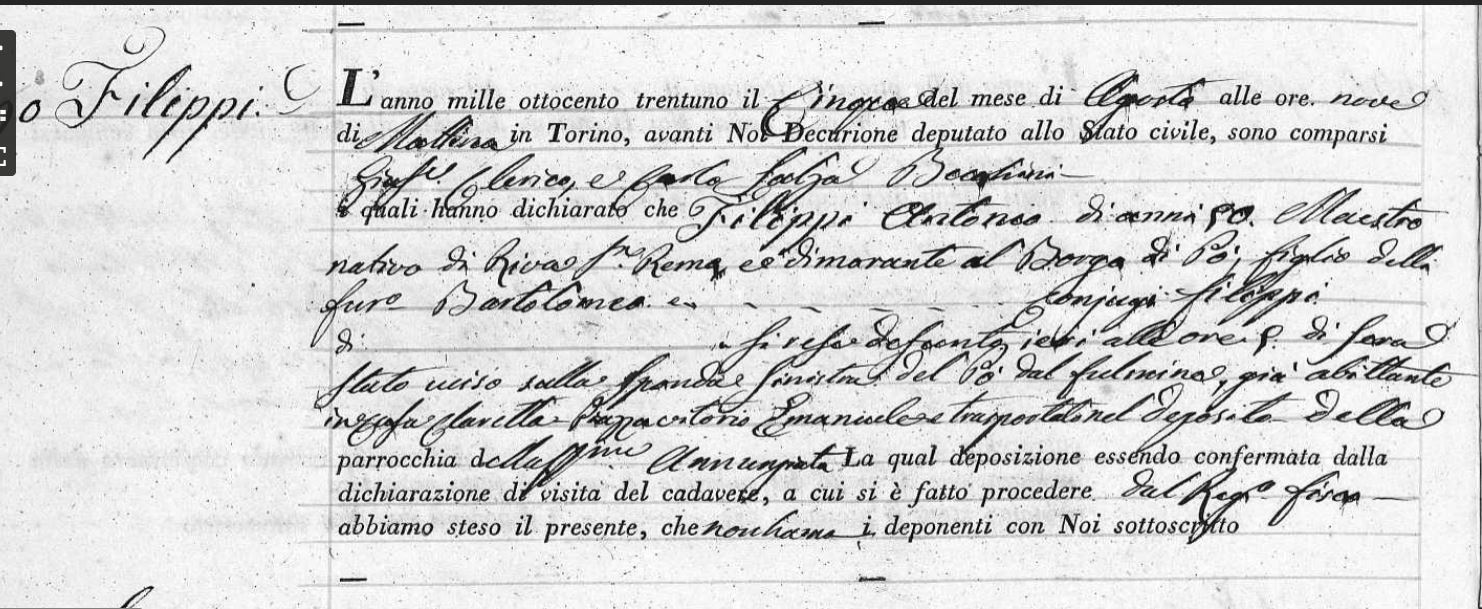 Filippi.
L'anno mille ottocento trentuno il Cinque del mese di Agosto alle ore. nove
di Mattina in Torino, avanti Noi Decurione deputato allo Stato civile, sono comparsi
Clerico, e Carlo
i quali hanno dichiarato che Filippi Antonio di anni 50. Maestro
nativo di Riva Sn. Remo, e dimorante al Borgo di Pò, figlio delli
furo Bartolomeo e conjugi Filippi
di si rese defunto, ieri alle ore di sera
stato uciso sulla sponda sinistra del Pò dal fulmine, già abittante
in casa Claretta Piazza Vitorio Emanuele e trasportato nel deposito della
parrocchia della SSma. Annunziata La qual deposizione essendo confermata dalla
dichiarazione di visita del cadavere, a cui si è fatto procedere dal Rego. fisco
abbiamo steso il presente, che non hanno i deponenti con Noi sottoscritto